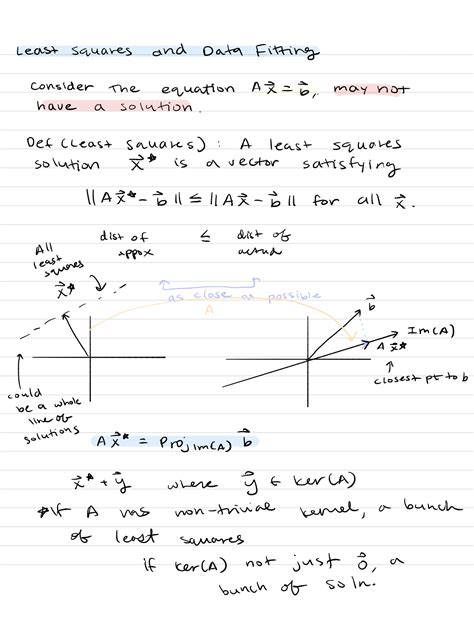 Least Squares and Data Fitting
Consider the equation Ax⃗ = b⃗, may not
have a solution.
Def (Least Squares) : A least squares
solution x⃗* is a vector satisfying
||Ax⃗* - b⃗|| ≤ ||Ax⃗ - b⃗|| for all x⃗.
dist of ≤ dist of
appox actual
All
least
squares
x⃗*
as close as possible
A
b⃗
Im(A)
A x⃗*
closest pt to b
could
be a whole
line of
solutions
Ax⃗* = Proj Im(A) b⃗
x⃗* + y⃗ where y⃗ ∈ ker(A)
*If A has non-trivial kernel, a bunch
of least squares
if ker(A) not just 0⃗, a
bunch of soln.